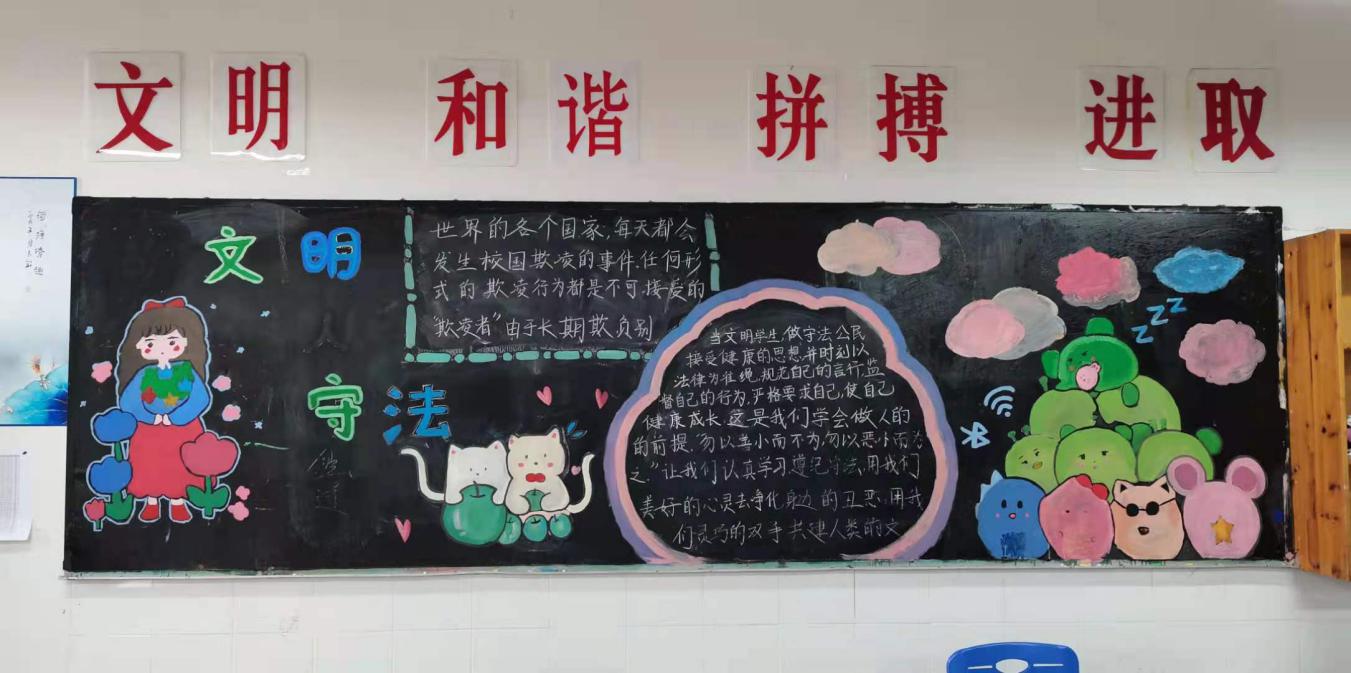 文明 和谐 拼搏 进取
文明
守法
世界的各个国家,每天都会
发生校园欺凌的事件.任何形
式的欺凌行为都是不可接受的
"欺凌者"由于长期欺负别
当文明学生,做守法公民
接受健康的思想,并时刻以
法律为准绳,规范自己的言行,监
督自己的行为,严格要求自己,使自己
健康成长.这是我们学会做人的
的前提."勿以善小而不为,勿以恶小而为
之."让我们认真学习遵纪守法,用我们
美好的心灵去净化身边的丑恶.用我
们灵巧的双手共建人类的文
zZZZ